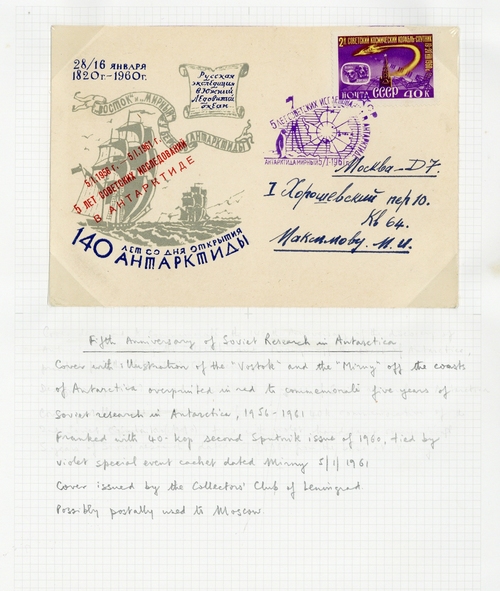 28/16 ЯНВАРЯ
1820г.-1960г.
Русская
экспедиция
в Южный
Ледовитый
Океан
"ВОСТОК" и "МИРНЫЙ"
АНТАРКТИДЫ
5/I.1956 г. - 5/I.1961 г.
5 ЛЕТ СОВЕТСКИХ ИССЛЕДОВАНИЙ
В АНТАРКТИДЕ
140 ЛЕТ СО ДНЯ ОТКРЫТИЯ
АНТАРКТИДЫ
2й СОВЕТСКИЙ КОСМИЧЕСКИЙ КОРАБЛЬ-СПУТНИК
ПОЧТА СССР 40 К
5 ЛЕТ СОВЕТСКИХ
АНТАРКТИДА МИРНЫЙ 5/I-1961
Москва - Д7.
I Хорошевский пер 10.
Кв 64.
Максимову. М. И.
Fifth Anniversary of Soviet Research in Antarctica
Cover with illustration of the "Vostok" and the "Mirny" off the coasts
of Antarctica overprinted in red to commemorate five years of
Soviet research in Antarctica, 1956-1961
Franked with 40. kop second Sputnik issue of 1960, tied by
violet special event cachet dated Mirny 5/1/1961
Cover issued by the Collectors' Club of Leningrad
Possibly postally used to Moscow